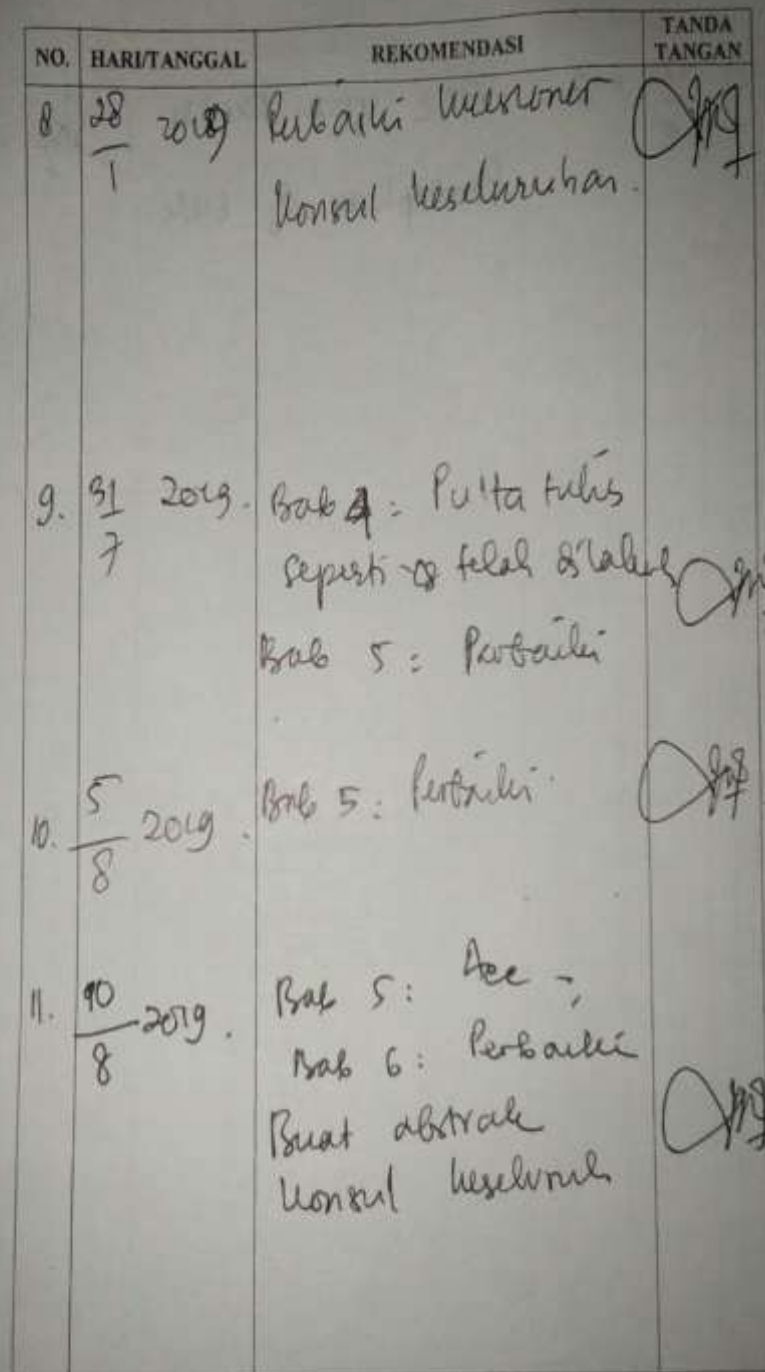 NO. HARI/TANGGAL REKOMENDASI TANDA TANGAN
8. 28/1 2019 Perbaiki kuesioner
Konsul keseluruhan.
9. 31/7 2019. Bab 4 : tulis
seperti yg telah
Bab 5 : Perbaiki
10. 5/8 2019. Bab 5 : Perbaiki.
11. 10/8 2019. Bab 5 : Acc
Bab 6 : Perbaiki
Buat abstrak
Konsul keseluruh